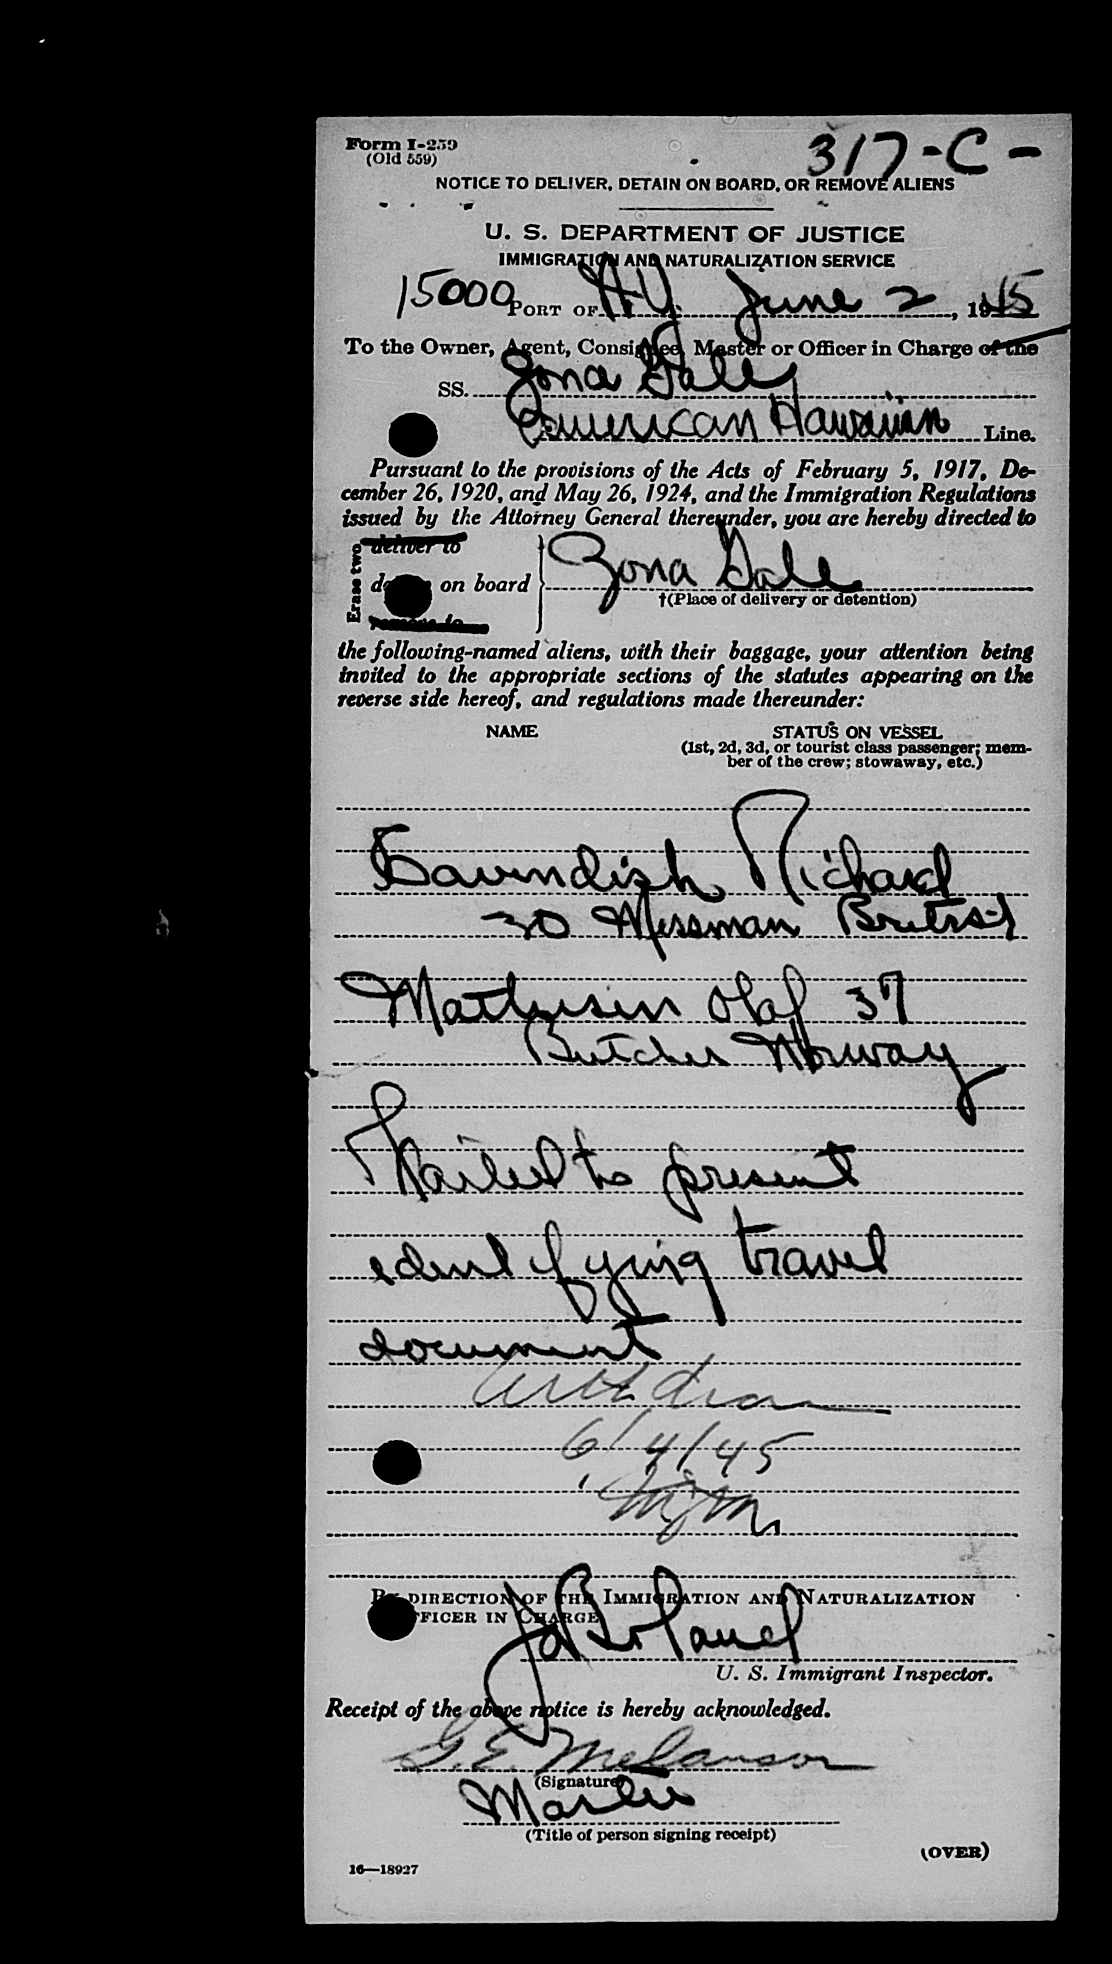 Form I-259
(Old 559)
317-C-
NOTICE TO DELIVER, DETAIN ON BOARD, OR REMOVE ALIENS
U. S. DEPARTMENT OF JUSTICE
IMMIGRATION AND NATURALIZATION SERVICE
15000 PORT OF N.Y. June 2, 1945
To the Owner, Agent, Consignee, Master or Officer in Charge of the
SS. Zona Gale
American Hawaiian Line.
Pursuant to the provisions of the Acts of February 5, 1917, De-
cember 26, 1920, and May 26, 1924, and the Immigration Regulations
issued by the Attorney General thereunder, you are hereby directed to
Erase two
deliver to
detain on board Zona Gale
remove to
†(Place of delivery or detention)
the following-named aliens, with their baggage, your attention being
invited to the appropriate sections of the statutes appearing on the
reverse side hereof, and regulations made thereunder:
NAME STATUS ON VESSEL
(1st, 2d, 3d, or tourist class passenger; mem-
ber of the crew; stowaway, etc.)
Cavendish Richard
30 Messman British
Mathisen Olaf 37
Butcher Norway
Failed to present
identifying travel
document
6/4/45
BY DIRECTION OF THE IMMIGRATION AND NATURALIZATION
OFFICER IN CHARGE
J Boland
U. S. Immigrant Inspector.
Receipt of the above notice is hereby acknowledged.
G. E. Melanson
(Signature)
Master
(Title of person signing receipt)
(OVER)
16—18927